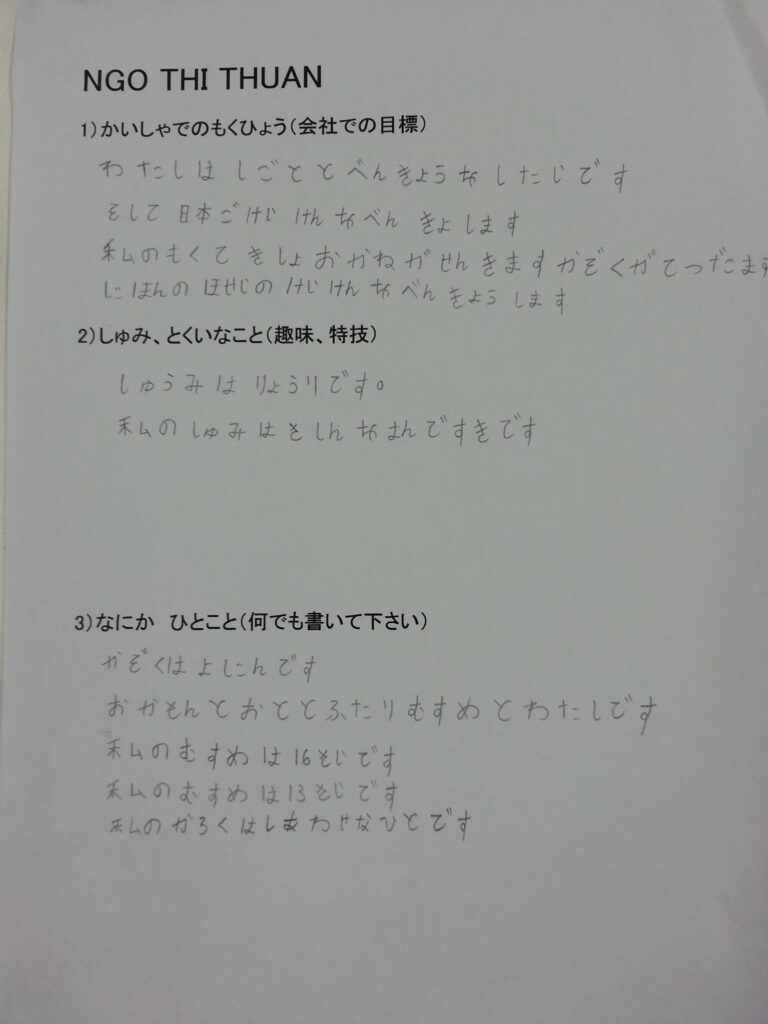 NGO THI THUAN
1)かいしゃでのもくひょう(会社での目標)
わたしは しごとと べんきょうを したじです
そして 日本ごけじ けんを べん きょします
私のもくてきしょ おかねが せんきますかぞくがてつだこます
にほんの ほせじの けじけんを べんきょうします
2)しゅみ、とくいなこと(趣味、特技)
しゅうみは りょうりです。
私のしゅみはそしんをはんですきです
3)なにか ひとこと(何でも書いて下さい)
かぞくは よしにんです
おかもんと おとと ふたりむすめとわたしです
私のむすめは16そじです
私のむすめは13そじです
私のかろくはしあわせなひとです